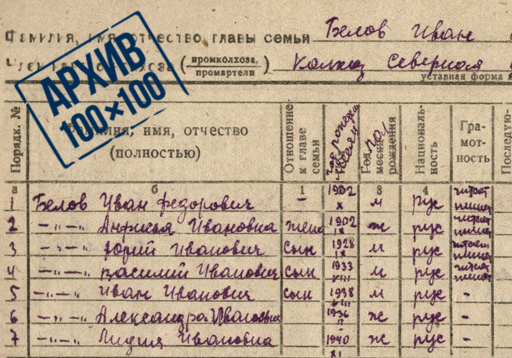 Фамилия, имя, отчество, главы семьи Белов Иван
(промколхоза, промартели) Колхоз Северная
уставная форма
АРХИВ
100×100
Порядк. №
имя, отчество
(полностью)
Отношение к главе семьи
Год рождения
пол
Националь-
ность
Гра-
мот-
ность
Последую-
а б 1 3 4
1 Белов Иван Федорович - 1902 X м рус читает пишет
2 -"-"- Ивановна жена 1902 IX ж рус читает пишет
3 -"-"- Юрий Иванович сын 1928 IX м рус читает пишет
4 -"-"- Василий Иванович сын 1933 м рус читает пишет
5 -"-"- Иван Иванович сын 1938 м рус -
6 -"-"- Александра Ивановна 1936 ж рус -
7 -"-"- Лидия Ивановна 1940 XI ж рус -